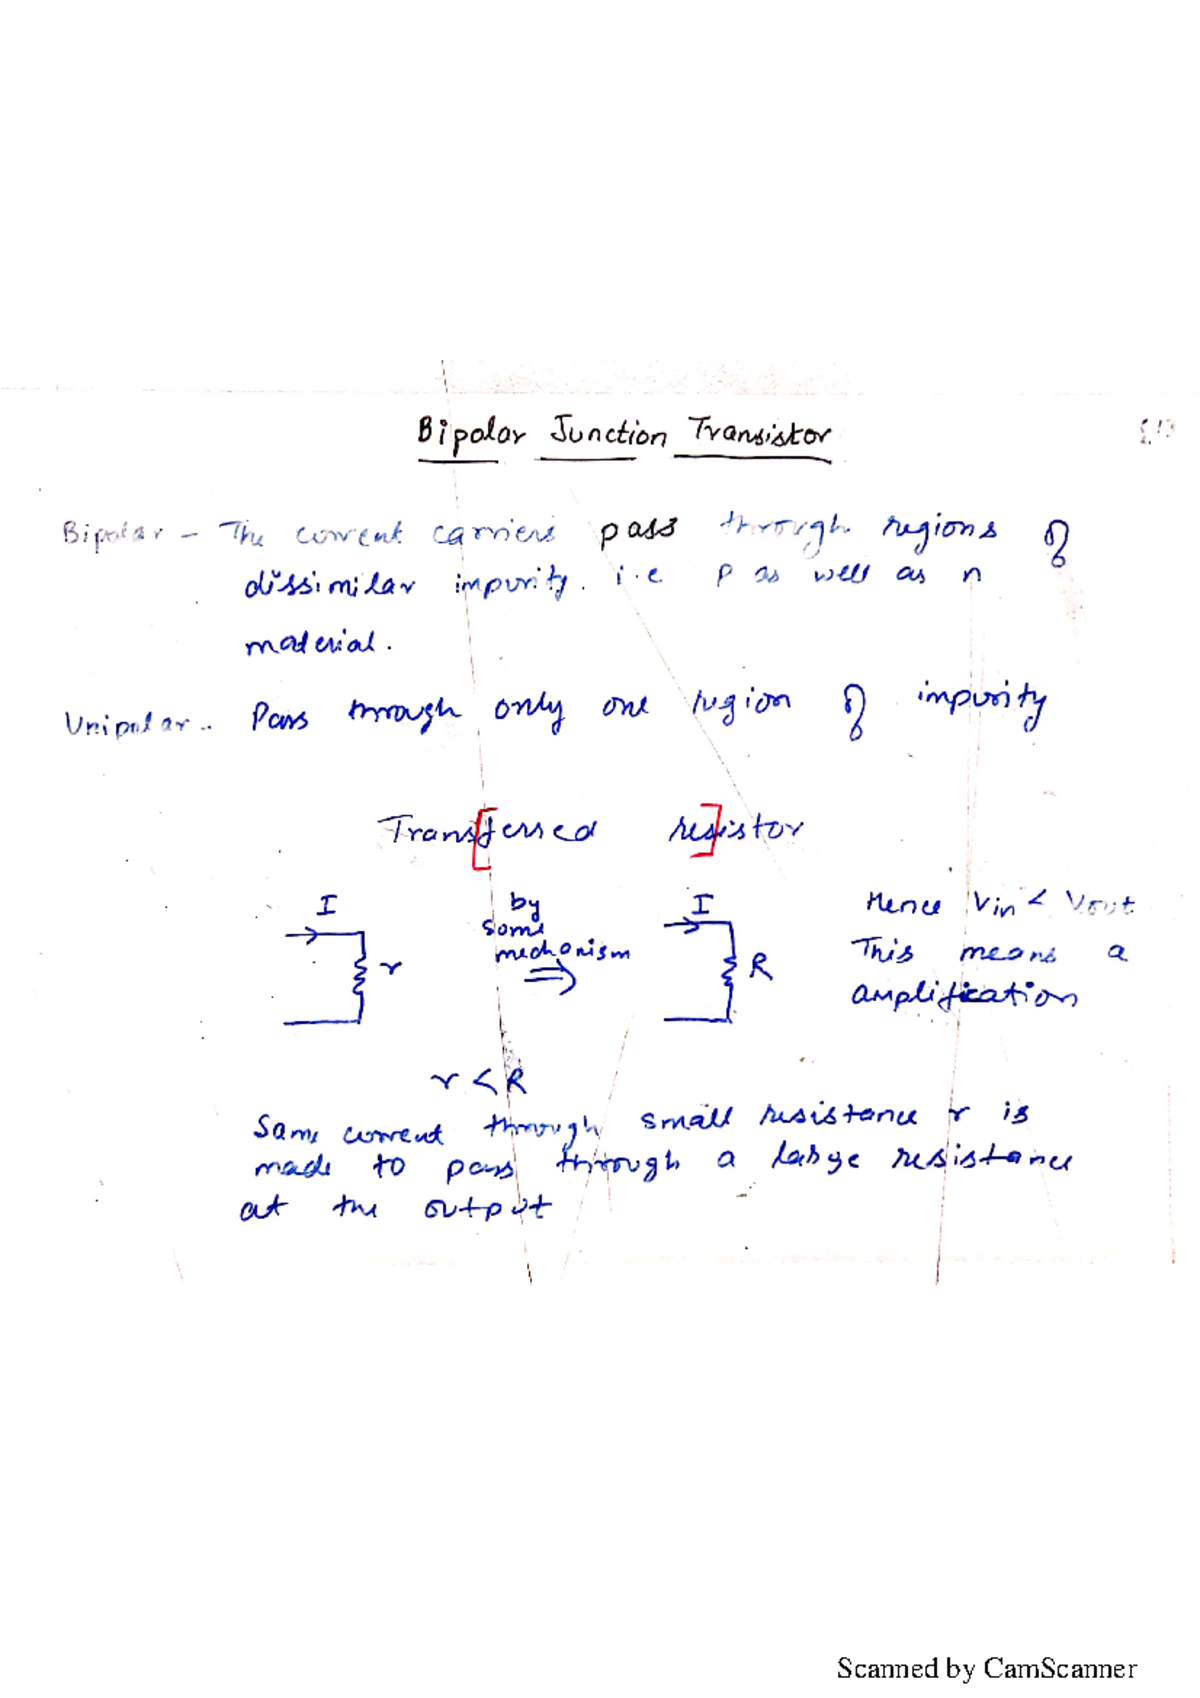 Bipolar Junction Transistor
Bipolar - The current carriers pass through regions of
dissimilar impurity. i.e P as well as n
material.
Unipolar - Pass through only one region of impurity
Transferred resistor
I
by
some
mechanism
⇒
I
r
R
Hence Vin < Vout
This means a
amplification
r < R
Same current through small resistance r is
made to pass through a large resistance
at the output
Scanned by CamScanner